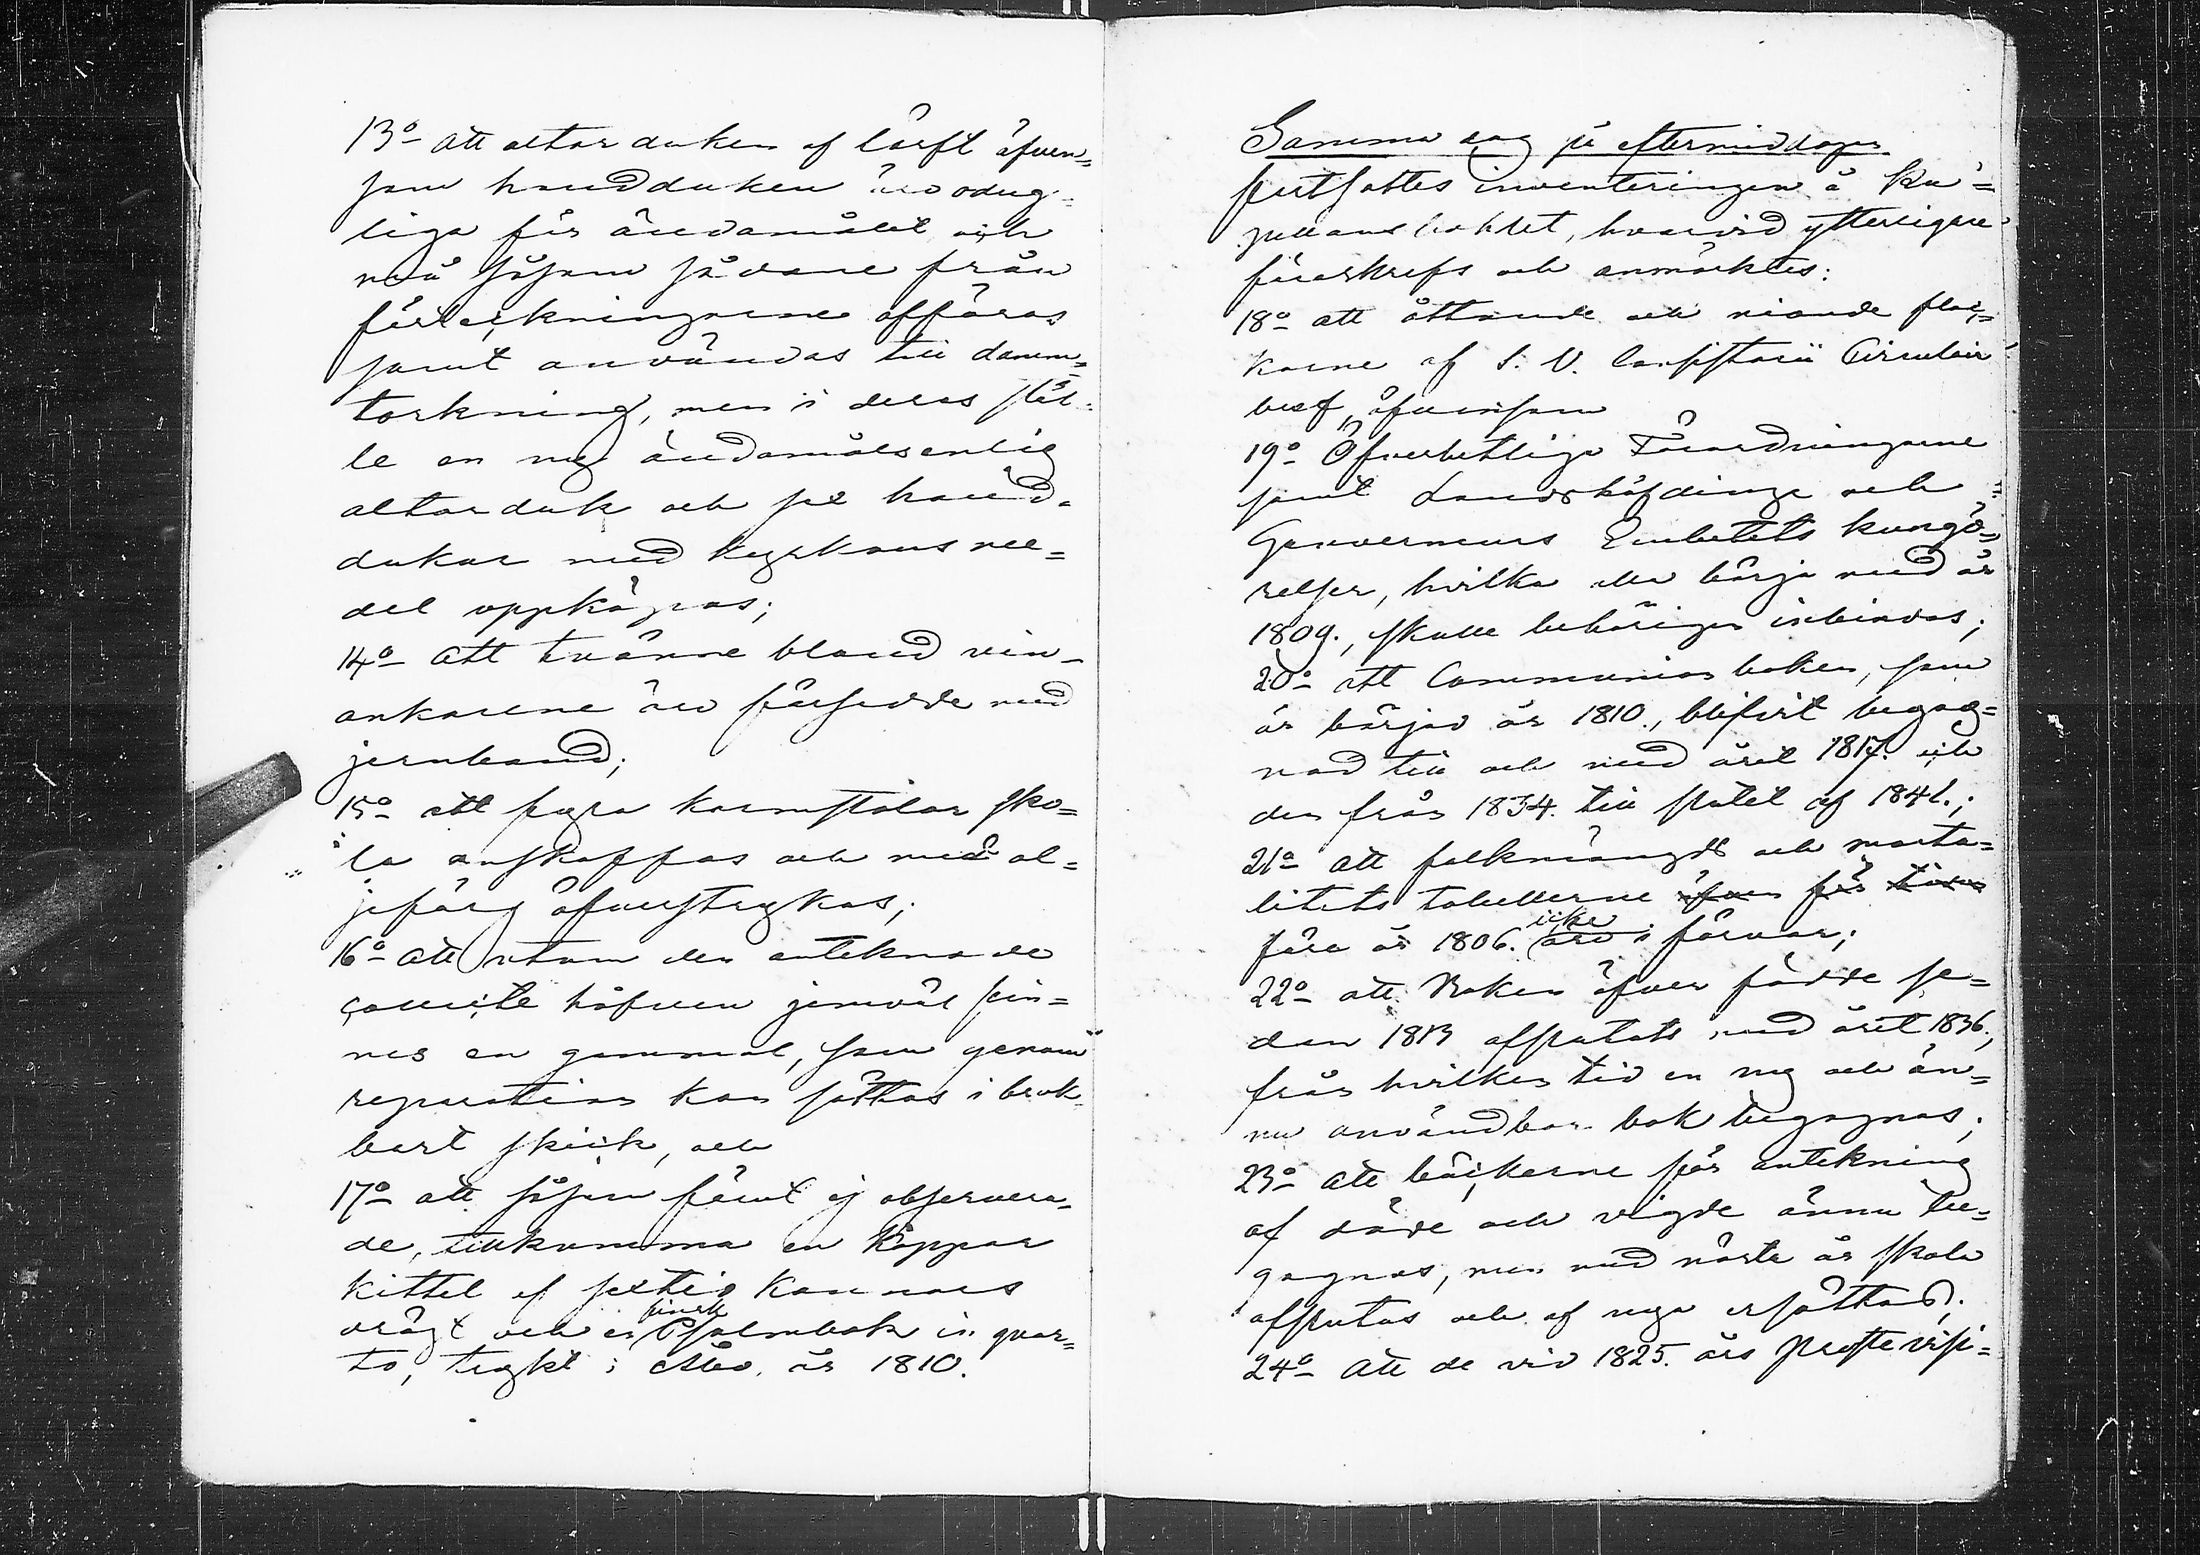 13o att altarduken af lärft äfven=
som handduken äro odug=
liga för ändamålet och
må såsom sådane från
förteckningarne afföras
samt användas till damm=
torkning, men i deras stäl=
le en ny ändamålsenlig
altarduk och sex hand=
dukar med kyrkans me=
del uppköpas;
14o att tvänne bland vin=
ankarene äro försedde med
jernband;
15o att fyra karmstolar sko=
la anskaffas och med ol=
jefärg öfverstrykas;
16o att utom den antecknade
håfven jemväl fin=
nes en gammal, som genom
reparation kan sättas i bruk=
bart skick, och
17o att såsom förut ej observera=
de, tillkomma en koppar
kittel af sextio kannors
drägt och en finsk Psalmbok in quar=
to, tryckt i Åbo år 1810.
Samma dag på eftermiddagen
fortsattes inventeringen å Ka=
pellansbohlet, hvarvid ytterligare
föreskrefs och anmärktes:
18o att åttonde och nionde floc=
karne af S. V. Consistorii Circulair
bref, äfvensom
19o Öfverhetliga Förordningarne
samt Landshöfdinge och
Gouverneurs Embetets kungö=
relser, hvilka alla börja med år
1809., skulle behörigen inbindas;
20o att Communion boken, som
är börjad år 1810., blifvit begag=
nad till och med året 1817. och
den från 1834. till slutet af 1841.;
21o att folkmängds och morta=
litets tabellerne äfven för tiden
före år 1806. icke äro i förvar;
22o att Boken öfver födde se=
dan 1813 afslutats med året 1836,
från hvilken tid en ny och än=
nu användbar bok begagnas;
23o att böckerne för anteckning
af döde och vigde ännu be=
gagnas, men med nästa år skola
afslutas och af nya ersättas;
24o att de vid 1825. års Prostevisi=